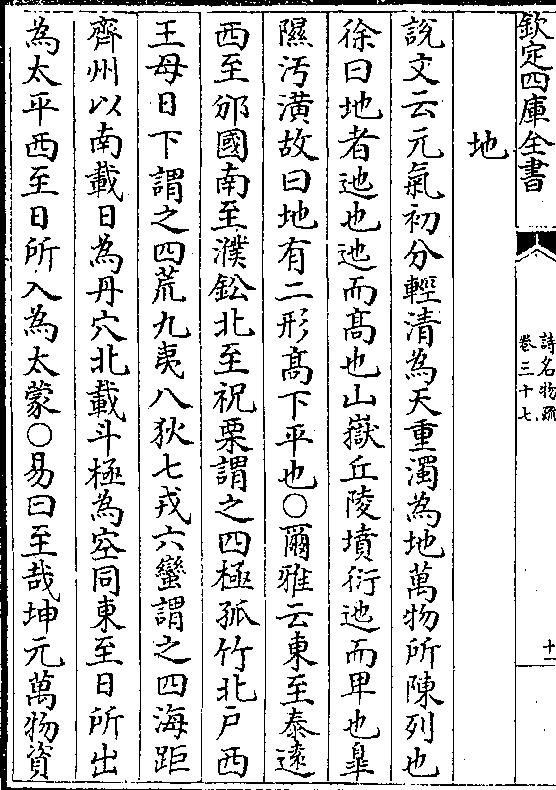 欽定四庫全書
詩名物疏
卷三十七
十一
地
說文云元氣初分輕清為天重濁為地萬物所陳列也
徐曰地者迆也迆而髙也山嶽丘陵墳衍迆而卑也臯
隰汚潢故曰地有二形髙下平也○爾雅云東至泰遠
西至邠國南至濮鈆北至祝栗謂之四極孤竹北戶西
王母日下謂之四荒九夷八狄七戎六蠻謂之四海距
齊州以南載日為丹穴北載斗極為空同東至日所出
為太平西至日所入為太蒙○易曰至哉坤元萬物資